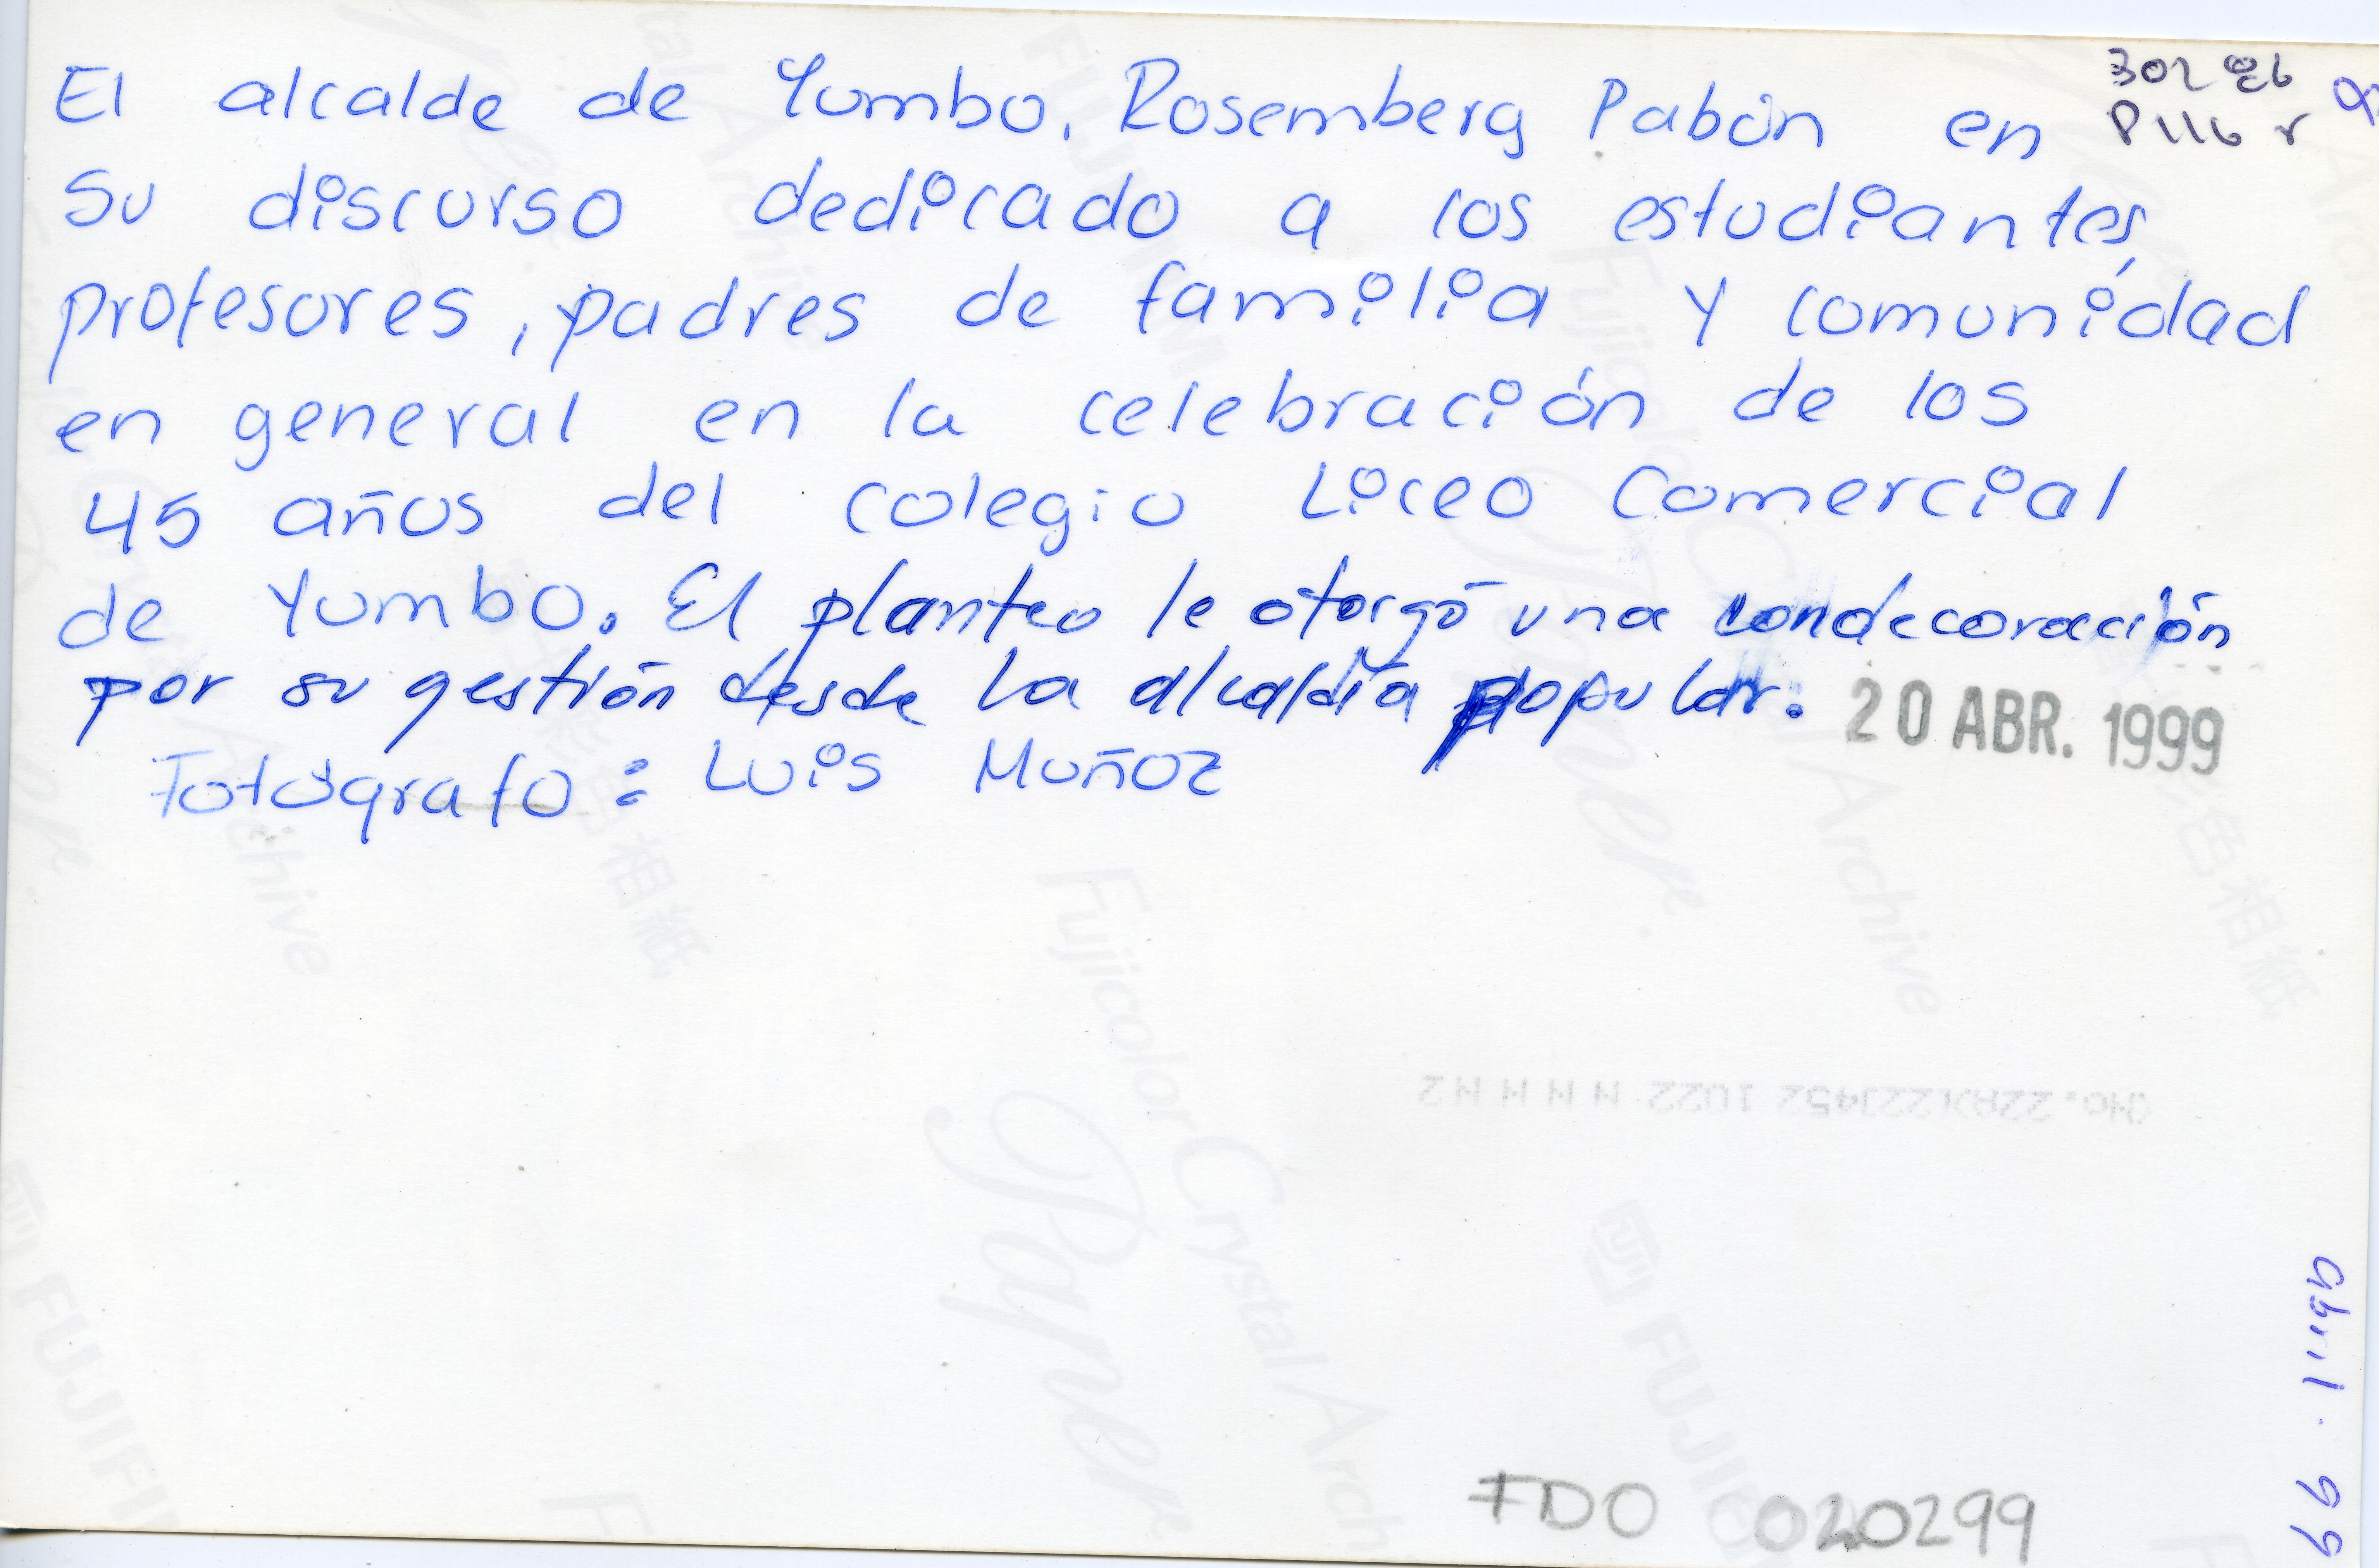 El alcalde de Yumbo, Rosemberg Pabón en
su discurso dedicado a los estudiantes,
profesores, padres de familia y comunidad
en general en la celebración de los
45 años del colegio Liceo Comercial
de Yumbo. El planteo le otorgó una condecoración
por su gestión desde la alcaldía popular.
20 ABR. 1999
Fotógrafo: Luis Muñoz
P116 r
abril. 99
FDO 020299
Fujicolor Crystal Archive
Paper
FUJIFILM